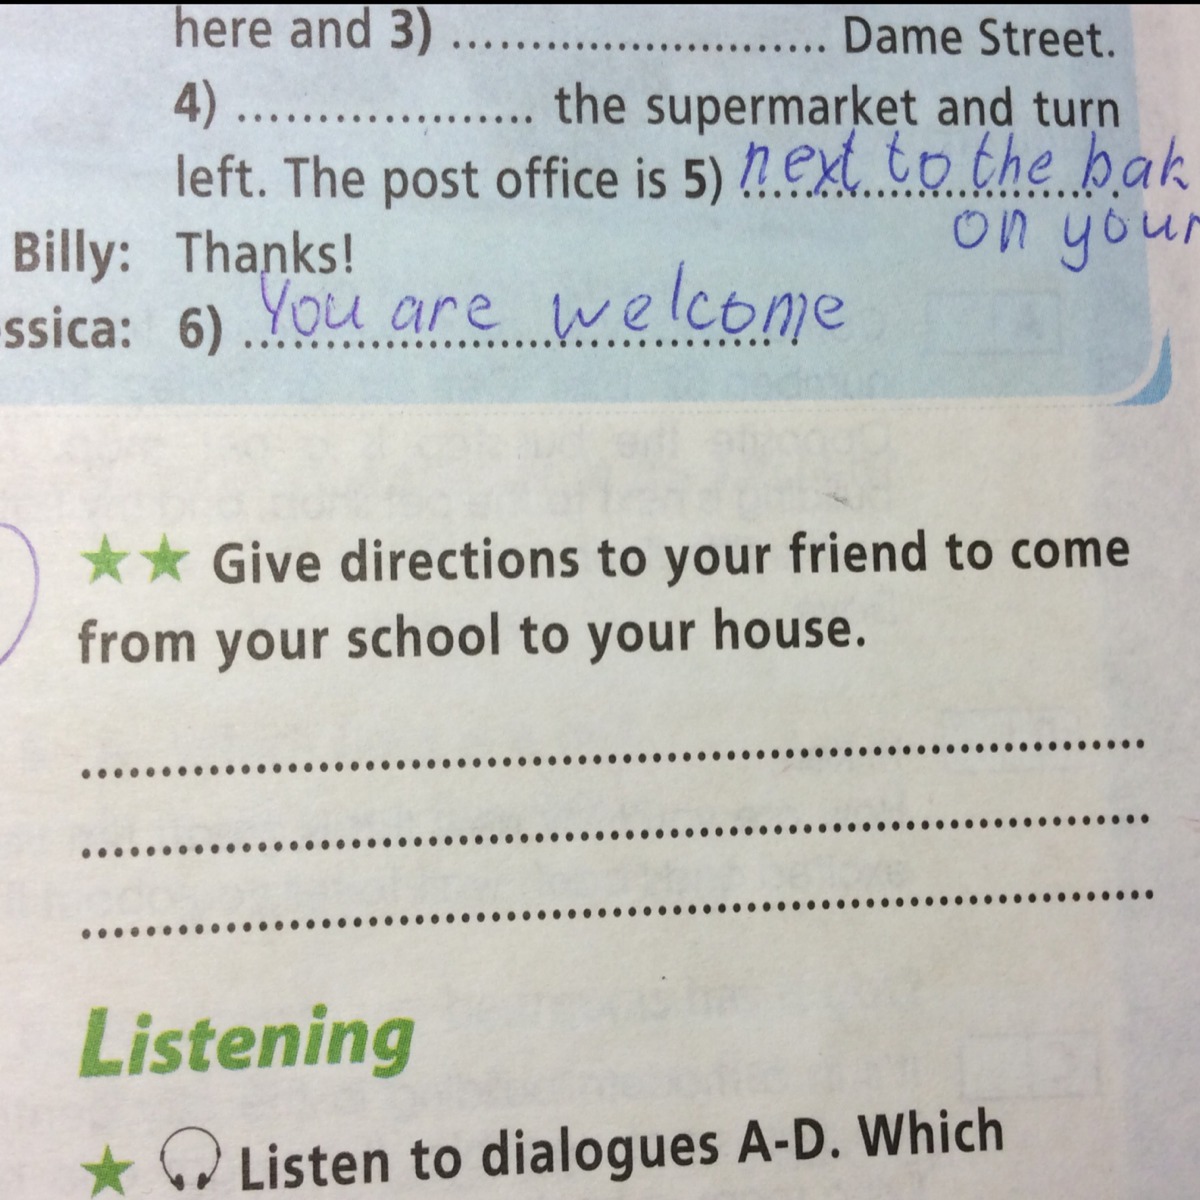 here and 3) .......................... Dame Street.
4) ................... the supermarket and turn
left. The post office is 5) next to the bak
on your
Billy: Thanks!
ssica: 6) You are welcome
★★ Give directions to your friend to come
from your school to your house.
Listening
★ Listen to dialogues A-D. Which